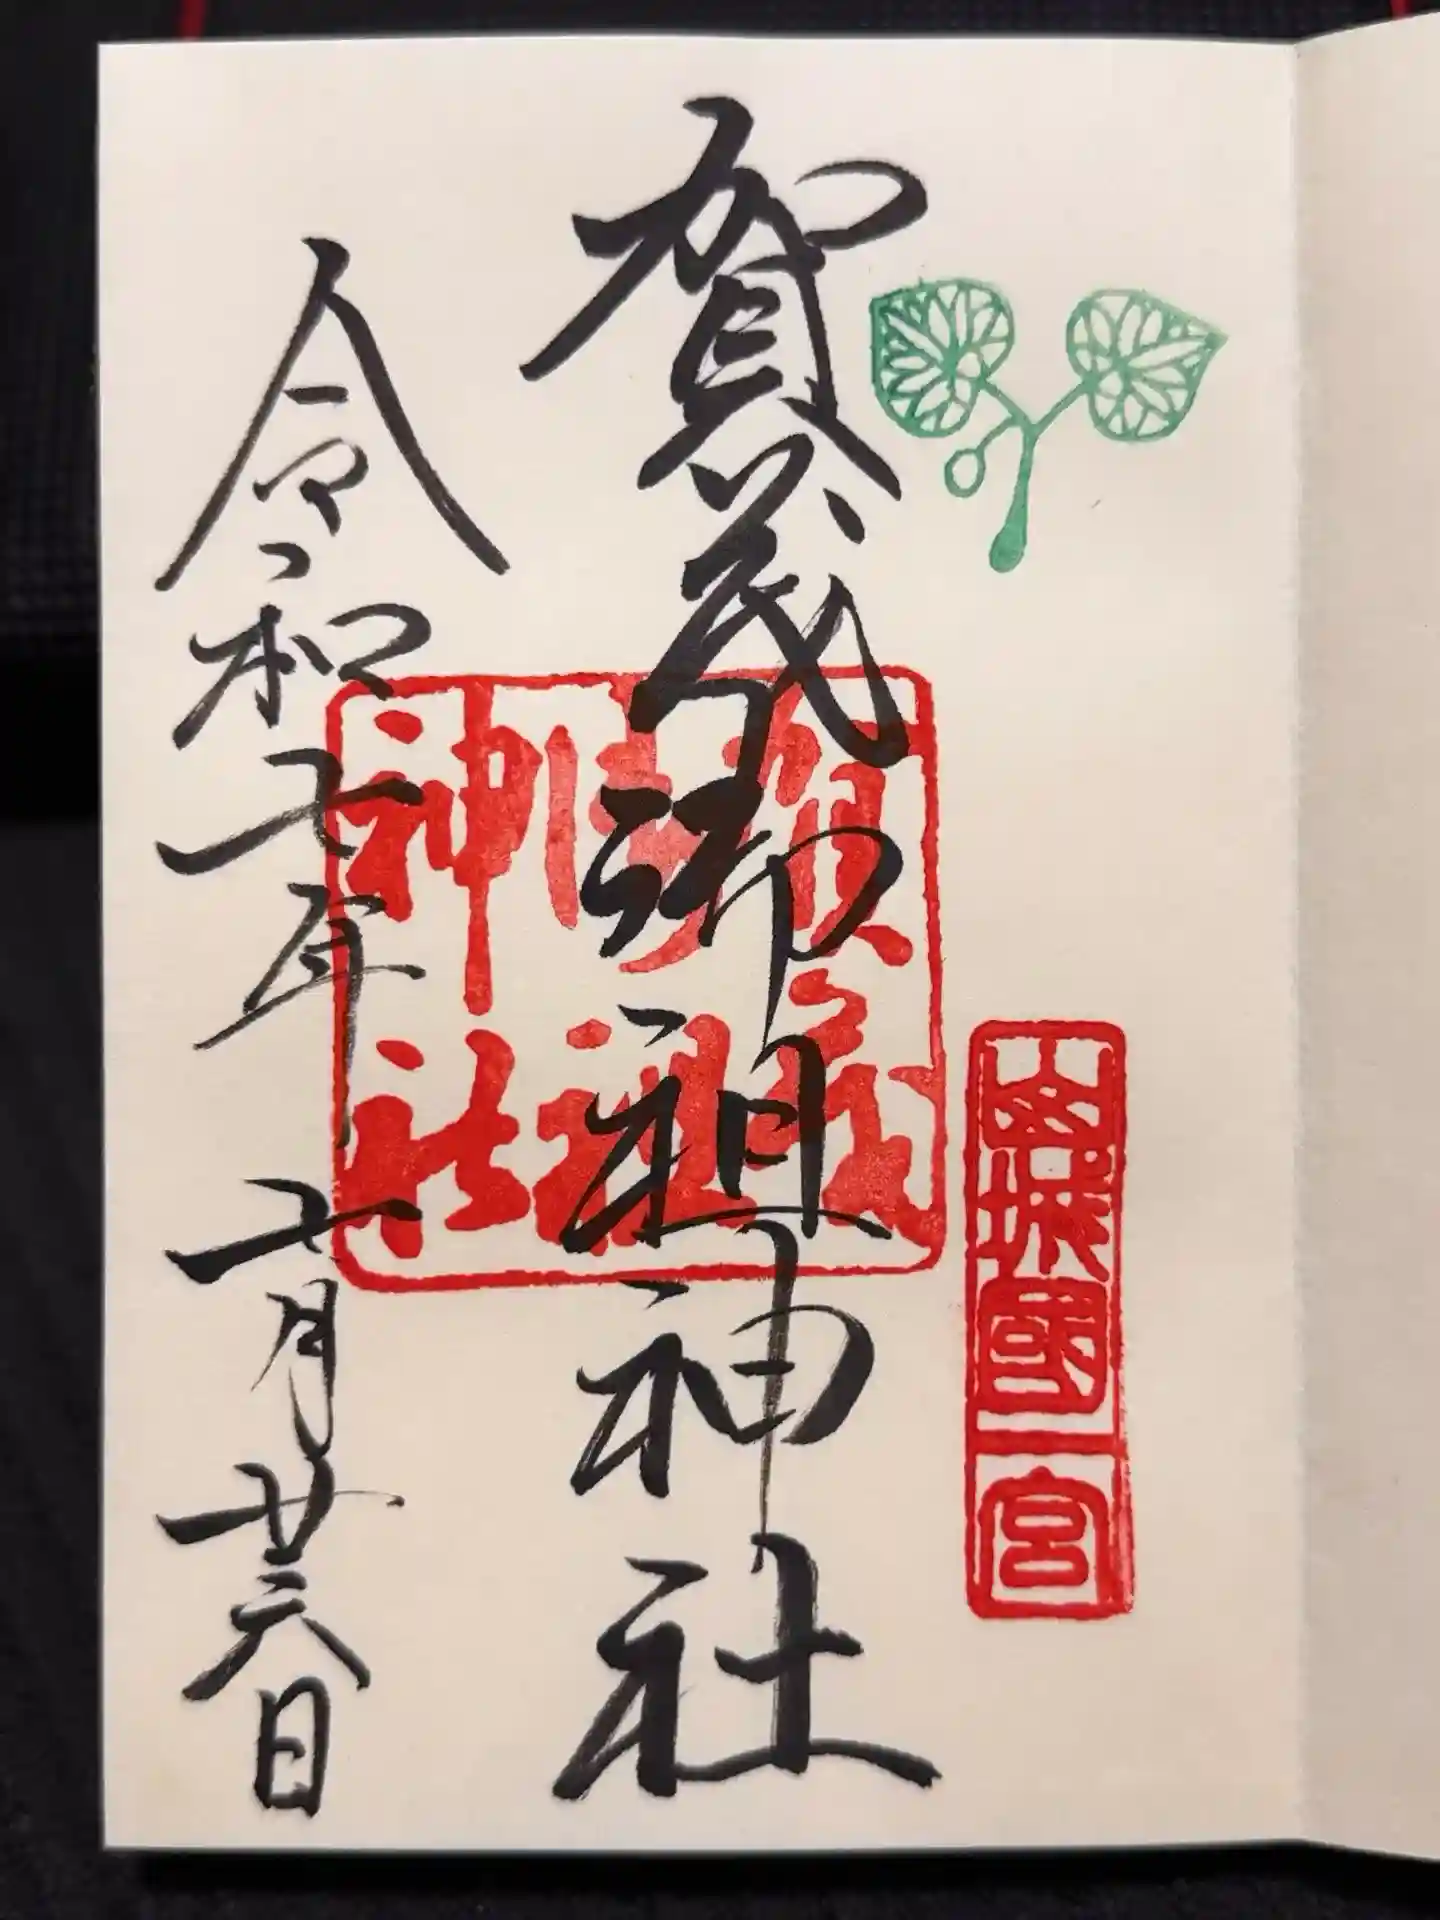 山城國一宮
賀茂御祖神社
賀茂
御祖
神社
令和七年 七月廿六日